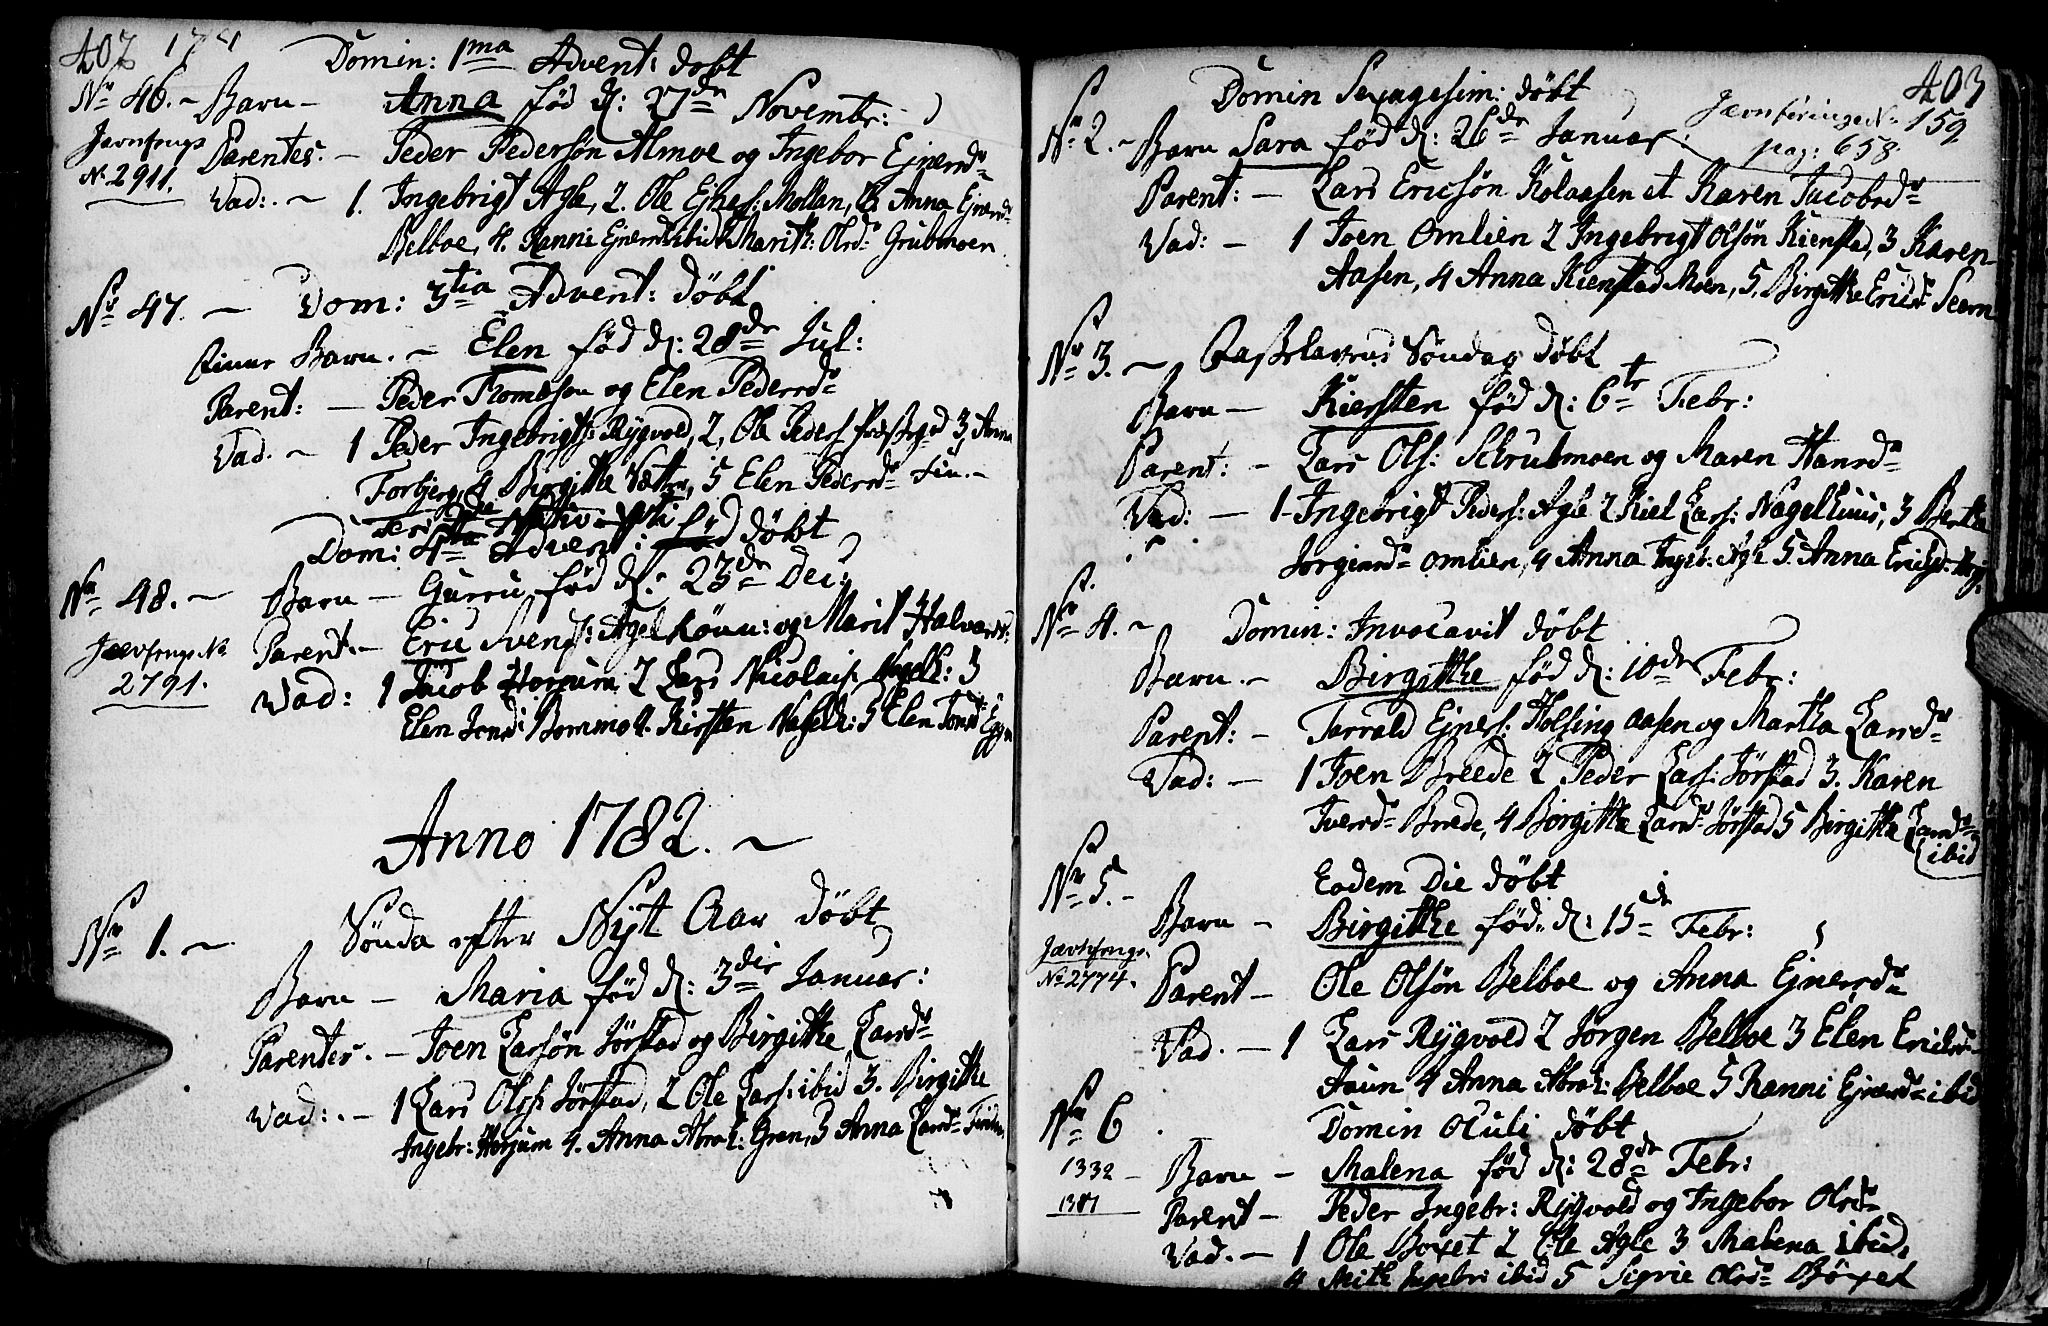 402 17
Domin: 1ma Advent: døbt
No 46. – Barn – Anna fød d: 27de Novembr:
Jævnfrngs Parentes. – Peder Pedersøn Almoe og Ingebor Ejnersd:
No 2911. Vad: – 1. Ingebrigt Agle, 2. Ole Ejners: Mollan, 3. Anna Ejnersd:
Belboe, 4. Ranni Ejnersd: ibid Marith: Olsd: Grubmoen
No 47. – Dom: 3tia Advent: døbt
Finne Barn. – Elen fød d: 28de Jul:
Parent: – Peder Thomæsøn og Elen Pedersd:
Vad. – 1 Peder Ingebrigts: Rygvold, 2, Ole Peders 3, Anna
Forbjerg, 4 Birgitte, 5 Elen Pedersd: Fin. –
Dom: 4ta Advent: fød døbt
No 48. – Barn – Gurru fød d: 23de Dec:
Jævnfrngs No Parent. – Eric Svends: og Marit Halvorsd:
2791. Vad: 1 Jacob Horjum 2 Lars Nicolais: Nagelh: 3
Elen Jonsd: Bommo 4. Kirsten Nagelh: 5 Elen
Anno 1782. –
No 1. – Sönda efter Nyt Aar døbt
Barn – Maria fød d: 3die Januar:
Parentes. – Joen Larsøn Jørstad og Birgitthe Larsd:
Vad: – 1 Lars Ols: Jørstad, 2 Ole Lars: ibid 3. Birgitthe
Ingebr: Horjum 4. Anna Abrah: Gran, 5 Anna Larsd:
403
Domin Sexagesim: døbt
Jævnføringsn: 159
pag: 658.
No 2. – Barn Sara fød d: 26de Januar:
Parent: – Lars Ericsøn Kolaasen et Karen Jacobsd:
Vad: – 1 Joen Omlien 2 Ingebrigt Olsøn Kienstad, 3 Karen
Aasen, 4 Anna Kienstad Moen, 5. Birgitthe Ericsd: Seem
No 3. – Fastelavns Söndag døbt
Barn – Kiersten fød d: 6te Febr:
Parent: – Lars Ols: Schrubmoen og Maren Hansd:
Vad: – 1 Ingebrigt Peders: Agle 2 Kiel Lars: Nagelhuus, 3 Berta
Jørgensd: Omlien, 4 Anna Ingeb: Agle 5. Anna Ericsd:
No 4. – Domin: Invocavit døbt
Barn. – Birgitthe fød d: 10de Febr:
Parent: – Tarrald Ejners: Holsing Aasen og Martha Larsd:
Vad: – 1 Joen Breede 2 Peder Lars: Jørstad 3. Karen
Iversd: Brede, 4 Birgitthe Larsd: Jørstad 5 Birgitthe Larsd:
ibid
No 5. – Eodem Die døbt
Barn – Birgitthe fød: d: 15de Febr:
Jævnfrngs
No 2774. Parent – Ole Olsøn Belboe og Anna Ejnersd:
Vad. – 1 Lars Rygvold 2 Jørgen Belboe 3 Elen Ericsd:
Faun 4 Anna Abrah: Belboe 5 Ranni Ejnersd: ibid
No 6 Domin Oculi døbt
1332 – Barn – Malena fød d: 28de Febr:
1381 Parent – Peder Ingebr: Rygvold og Ingebor Olsd:
Vad. – 1 Ole Boxet 2 Ole Agle 3 Malena ibid,
4 Ingebr: ibid 5 Sigrie Olsd: Böxet